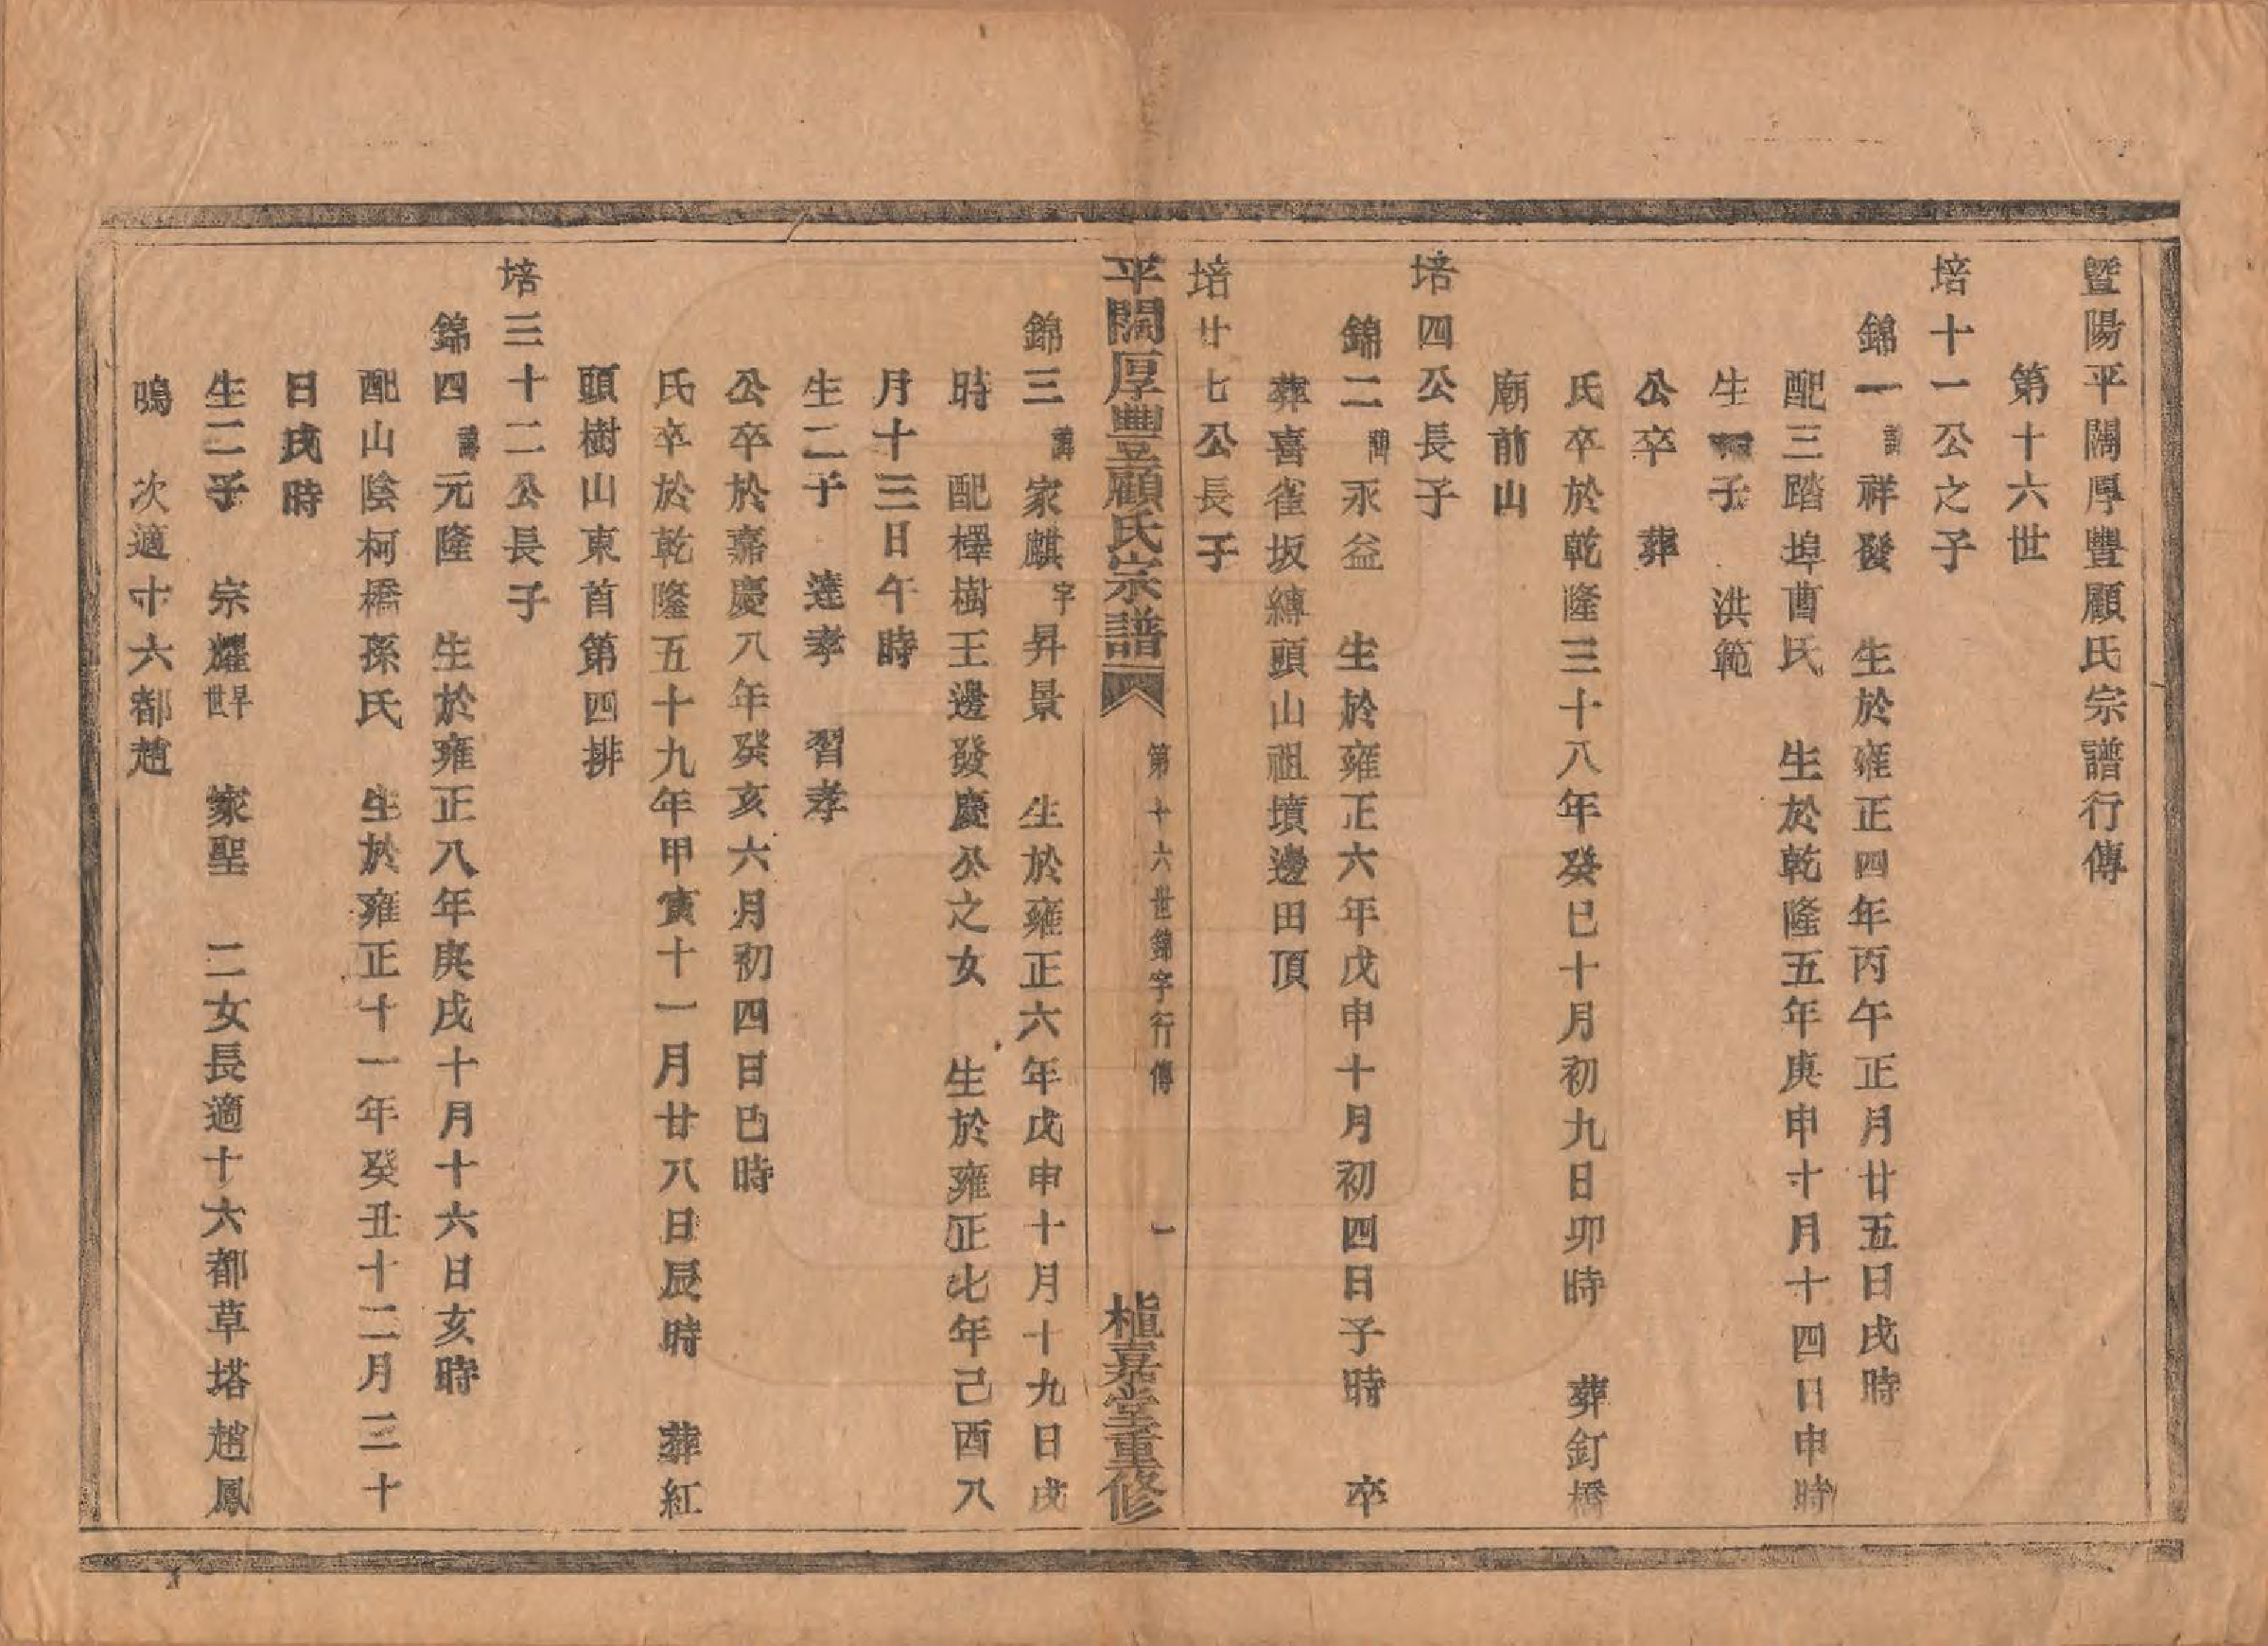 暨陽平闊厚豐顧氏宗譜行傳
第十六世
培十一公之子
錦一諱祥發 生於雍正四年丙午正月廿五日戌時
配三踏埠曹氏 生於乾隆五年庚申十月十四日申時
生子 洪範
公卒 葬
氏卒於乾隆三十八年癸巳十月初九日卯時 葬釘橋
廟前山
培四公長子
錦二諱永益 生於雍正六年戊申十月初四日子時 卒
葬喜雀坂縛頭山祖墳邊田頂
培廿七公長子
平闊厚豐顧氏宗譜 第十六世錦字行傳 一 植嘉堂重修
錦三諱家麒字昇景 生於雍正六年戊申十月十九日戌
時 配檡樹王邊發慶公之女 生於雍正七年己酉八
月十三日午時
生二子 達孝 習孝
公卒於嘉慶八年癸亥六月初四日巳時
氏卒於乾隆五十九年甲寅十一月廿八日辰時 葬紅
頭樹山東首第四排
培三十二公長子
錦四諱元隆 生於雍正八年庚戌十月十六日亥時
配山陰柯橋孫氏 生於雍正十一年癸丑十二月三十
日戌時
生二子 宗耀早世 家聖 二女長適十六都草塔趙鳳
鳴 次適十六都趙